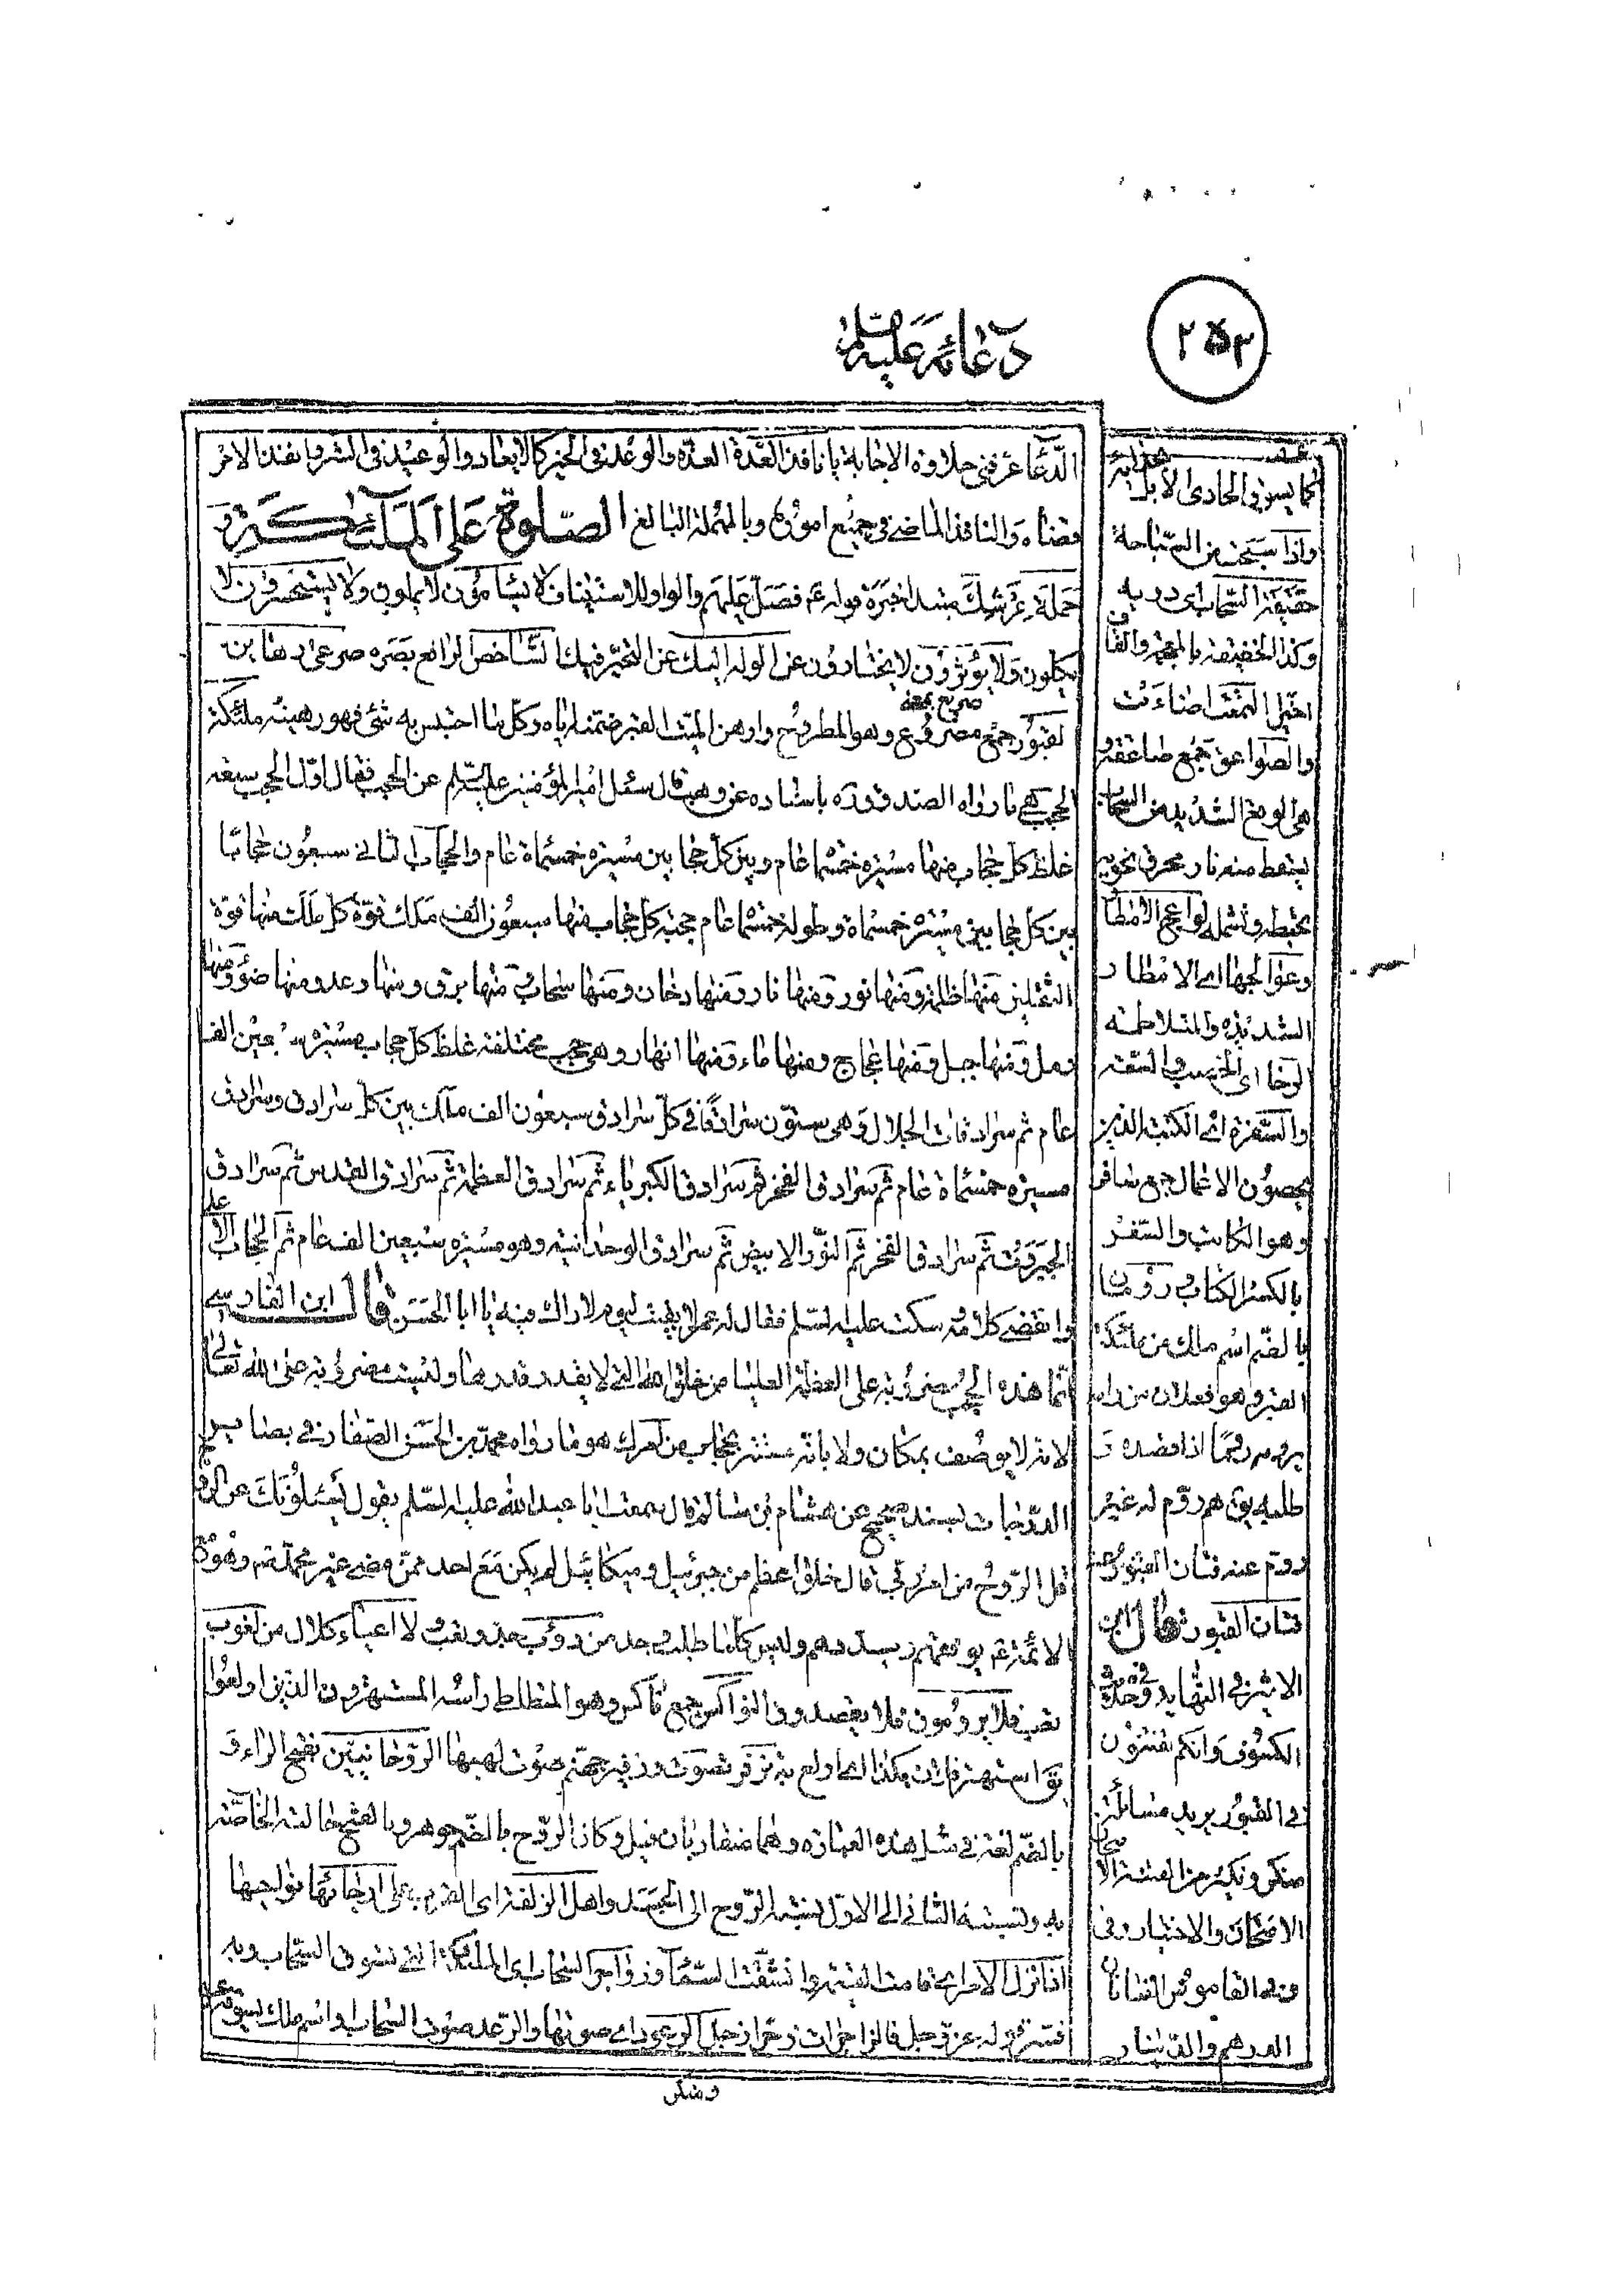 ٢٥٣
دعائه عليه السلم
الدّعا عرفنى حلاوة الاجابة يا نافذ العدة العدّه والوعد فى الخير كالايعاد والوعيد فى الشر وانفذ الامر
قضاه والنافذ الماضى فى جميع اموره وبالمهملة البالغ الصّلوة على الملائكة و
حملة عرشك مبتدا خبره قوله ع فصلّ عليهم والواو للاستيناف لا يسأمون لا يملون ولا يستحسرون لا
يكلون ولا يؤثرون لا يختارون عن الوله اليك عن التحيّر فيك الشّاخص الرافع بصره صرعى رهاين
القبور جمع مصروع وهو المطروح وارهن الميت القبر ضمّنه اياه وكل ما احتبس به شئ فهو رهينه ملئكة
صريع بمعنى
الحجب هى ما رواه الصدوق ره باسناده عن وهب قال سئل امير المؤمنين عليه السّلم عن الحجب فقال اوّل الحجب سبعة
غلظ كل حجاب منها مسيره خمسمائة عام وبين كل حجابين مسيرة خمسمائة عام والحجاب الثانى سبعون حجابا
بين كل حجابين مسيرة خمسمائة وطوله خمسمائة عام حجبة كل حجاب منها سبعون الف ملك قوّة كل ملك منها قوّة
الثقلين منها ظلمة ومنها نور ومنها نار ومنها دخان ومنها سحاب ومنها برق ومنها رعد ومنها ضوء ومنها
رمل ومنها جبل ومنها عجاج ومنها ماء ومنها انهار وهى حجب مختلفة غلظ كل حجاب مسيره سبعين الف
عام ثم سرادقات الجلال وهى ستون سرادقا فى كل سرادق سبعون الف ملك بين كل سرادق وسرادق
مسيره خمسمائة عام ثم سرادق الفخر ثم سرادق الكبرياء ثم سرادق العظمة ثم سرادق القدس ثم سرادق
الجبروت ثم سرادق الفخر ثم النّور الابيض ثم سرادق الوحدانية وهو مسيره سبعين الف عام ثم الحجاب الاعلى
وانقضى كلامه وسكت عليه السلم فقال له عمر لا بقيت ليوم لا اراك فيه يا ابا الحسن قال ابن الفارسى
انّما هذه الحجب مضروبة على العظمة العليا من خلق الله التى لا يقدر قدرها وليست مضروبة على الله تعالى
لانه لا يوصف بمكان ولا بانه مستتر بحجاب من امرك هو ما رواه محمّد بن الحسن الصّفار فى بصاير
الدّرجات بسند صحيح عن هشام بن سالم قال سمعت ابا عبد الله عليه السّلم يقول يسئلونك عن الروح
قل الرّوح من امر ربّى قال خلق اعظم من جبرئيل وميكائيل لم يكن مع احد ممّن مضى غير محمّد ص وهو مع
الائمّة ع يوفقهم ويسددهم وليس كلّما طلب وجد من دؤب جدّ وتعب ولا اعياء كلال من لغوب
نصب فلا يرومون فلا يقصدون النواكس جمع ناكس وهو المتطلط راسه المستهترون الذين اولعوا
يق استهتر فلان بكذا اى اولع به تزفر تصوت وزفير جهنم صوت لهبها الروحانيين بفتح الراء و
بالضّم لغة فى مثل هذه العبارة وهما متقاربان قيل وكان الرّوح بالضم جوهر وبالفتح حالته الخاصّة
به ونسبة الثانى الى الاوّل نسبة الرّوح الى الجسد واهل الزلفة اى القرب على ارجائها نواحيها
اذا نزل الامر بتمام القيمة وانشقت السّماء وزواجر السّحاب اى الملئكة التى تسوق السّحاب وبه
فسّر قوله عزّ وجل فالزاجرات زجرا زجل الرعود اى صوتها والرّعد صوت السّحاب او اسم ملك يسوقه
كما يسوق الحادى الابل بحدائه
واذا سبحت من السّباحة
حفيفة السّحاب اى دويه
وكذا الخفيفة بالمعجمة والفا
التمعت اضاءت
والصّواعق جمع صاعقة و
هى الوقع الشديد من السحاب
يسقط منه نار
لواعج الامطار
وعوالجها اى الامطار
الشديده والمتلاطمة
الرخا اى الخصب والسّعة
والسّفرة اى الكتبة الذين
يحصون الاعمال جمع سافر
وهو الكاتب والسّفر
بالكسر الكتاب رومان
بالضّم اسم ملك من ملئكة
القبر وهو فعلان من رام
يروم روما اذا قصده و
طلبه يق هم روّم له غير
روم عنه فتان القبور
فتان القبور قال ابن
الاثير فى النّهاية وفى حديث
الكسوف وانكم تفتنون
فى القبور يريد مسائلة
منكر ونكير من الفتنة
الامتحان والاختبار وفى
القاموس الفتانان
الدرهم والدّينار
ومنكر